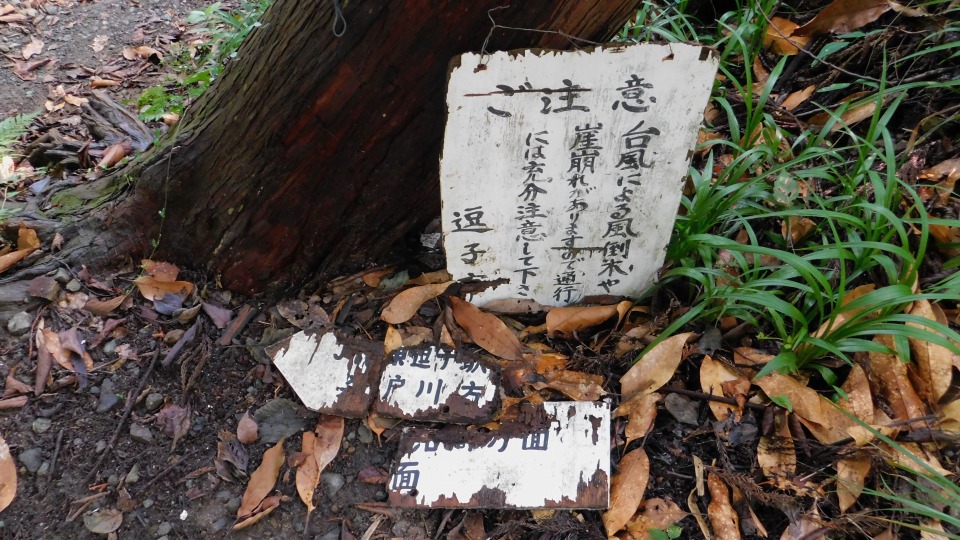 ご注意
台風による風倒木や
崖崩れがありますので通行
には充分注意して下さ
逗子
東逗子駅
戸川方
方面
面